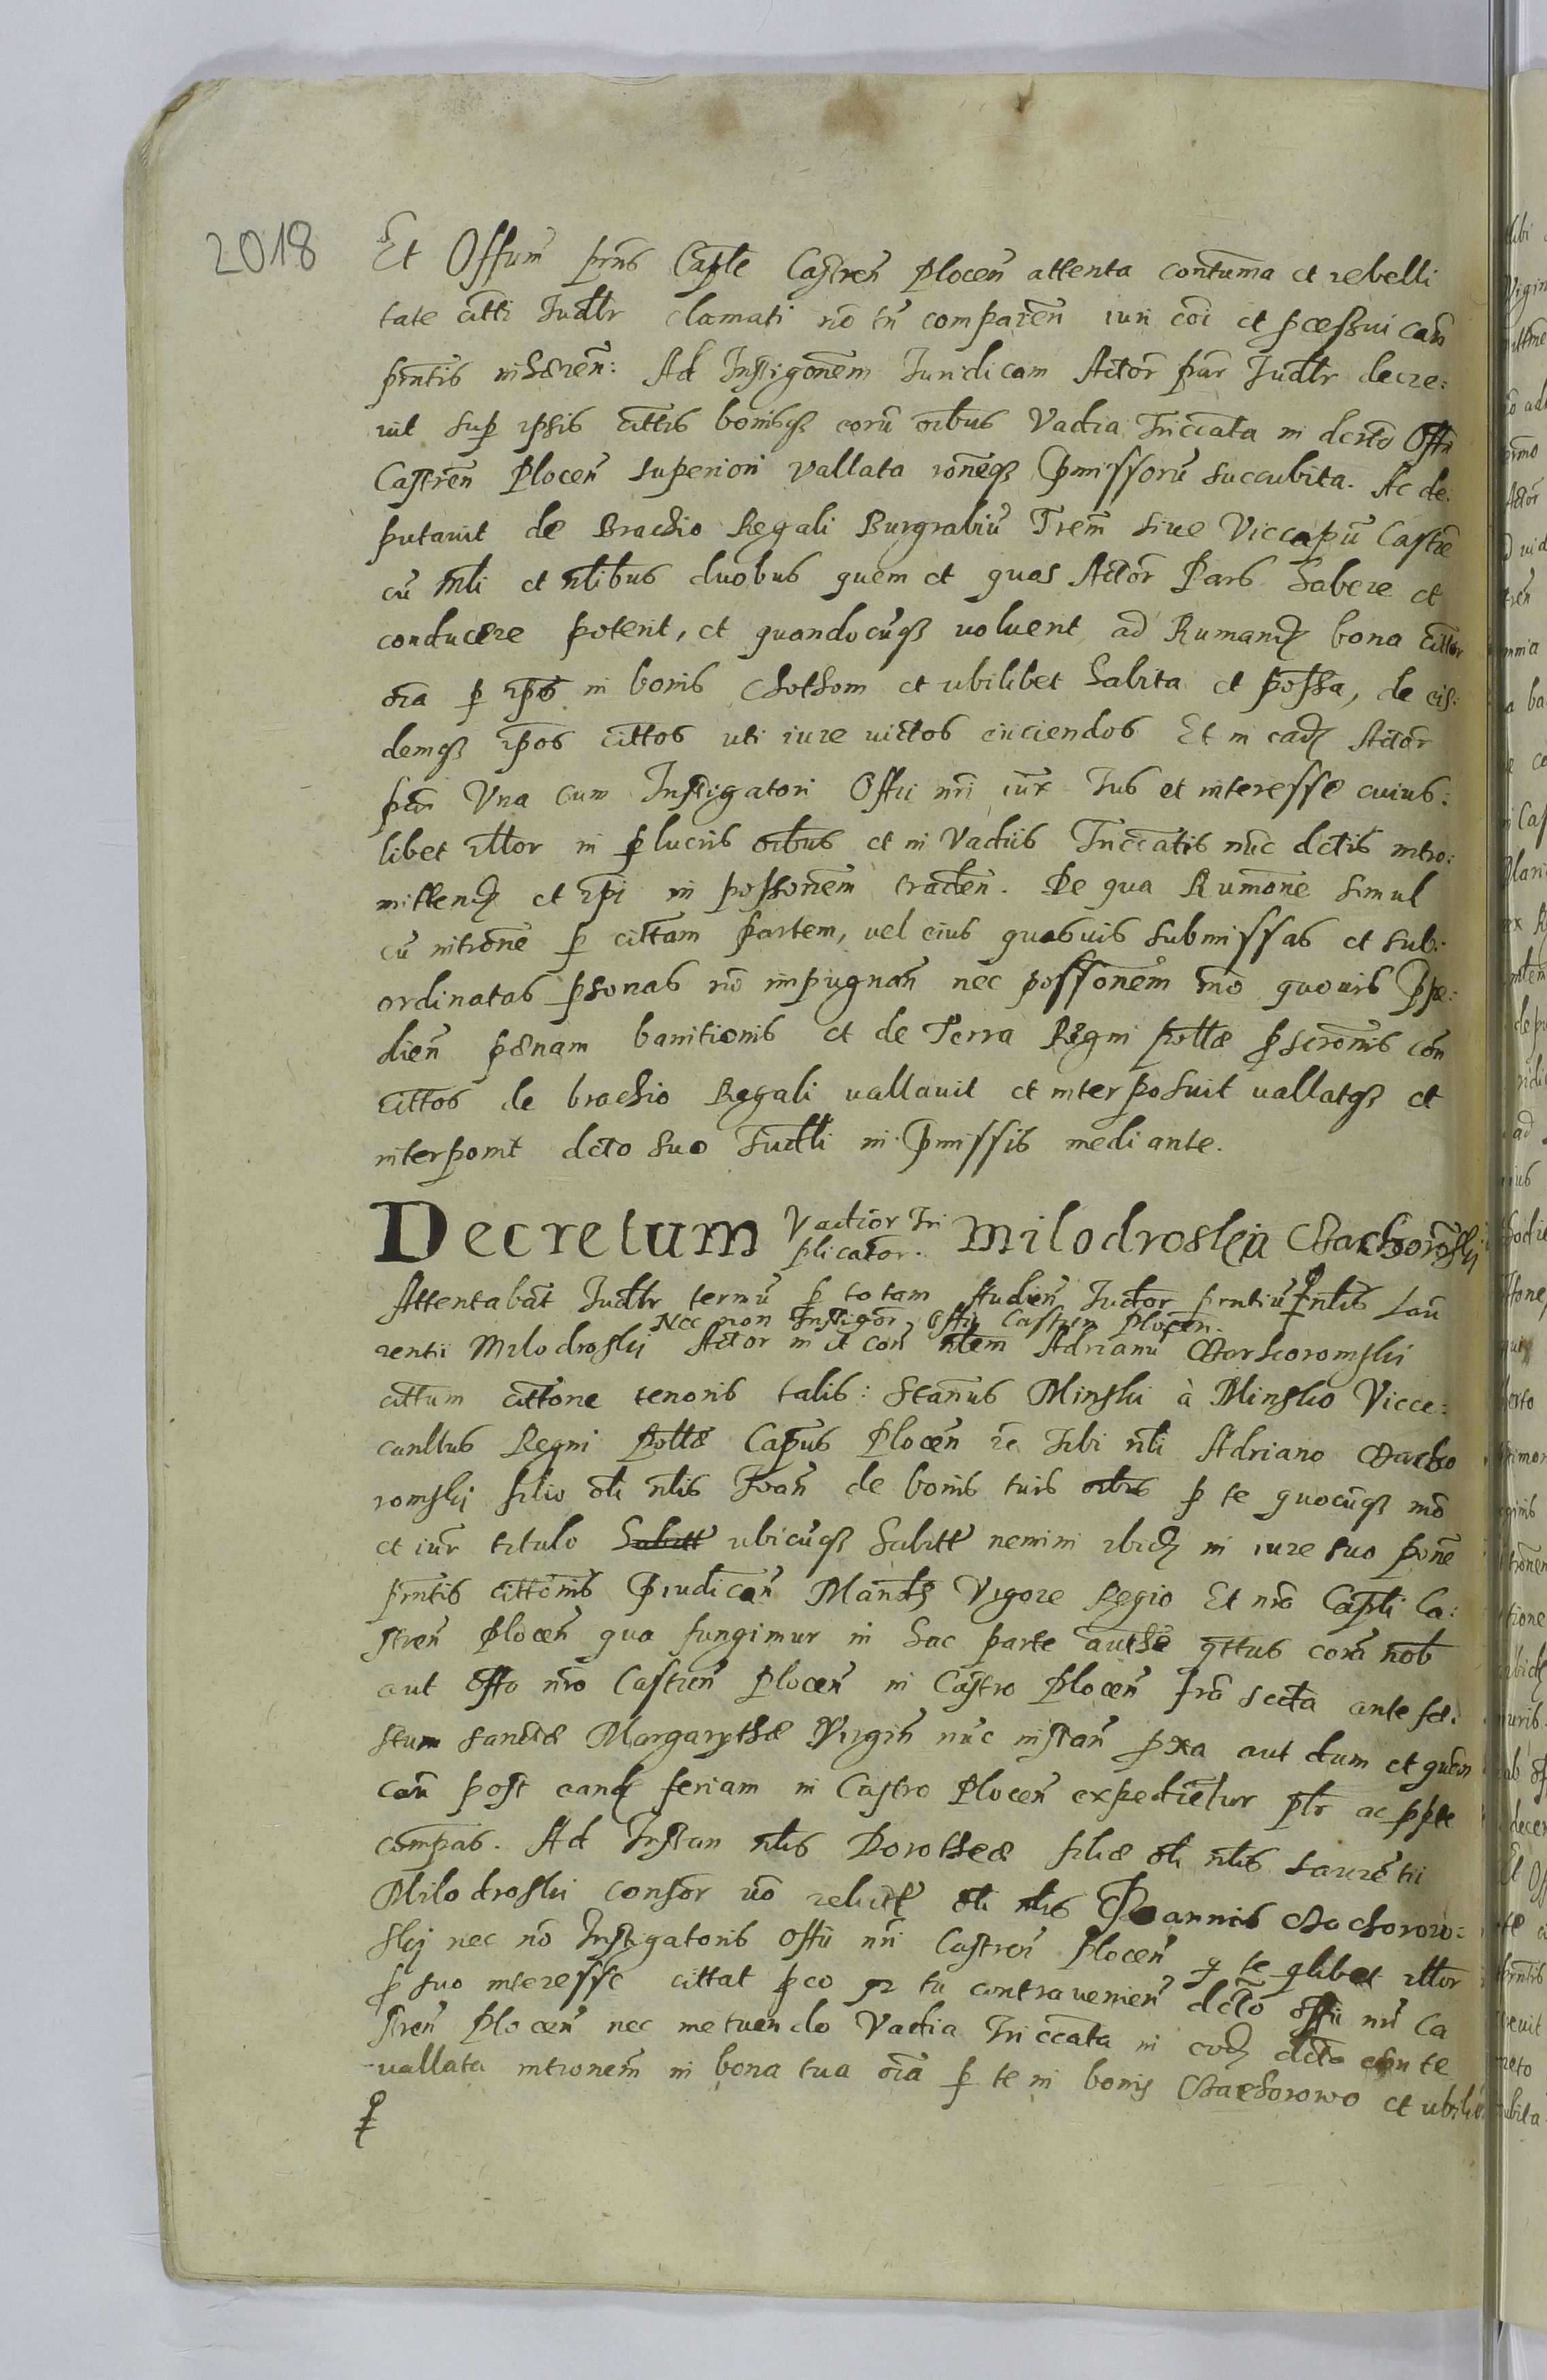 2018
Et Offum prns Caple Castren Plocen attenta contuma et rebelli
tate citti Judlr clamati no tn comparen iuri coi et pcessui can
prntis inhæren: Ad Instigonem Juridicam Actor par Judlr decre:
uit sup ipsis cittis bonisq eoru oibus Vadia Triccata in dcrto Offii
Castren Plocen superiori vallata roneq pmissoru succubita. Ac de:
putauit de Brachio Regali Burgrabiu Trem siue Viccapu Castre
cu nli et nlibus duobus quem et quos Actor Pars habere et
conducere poterit, et quandocuq uoluerit ad Rumand bona cittor
oia p ipos in bonis Chothom et ubilibet habita et possa, de eis:
demq ipos cittos uti iure uictos eiiciendos Et in ead Actor
par Una cum Instigatori Offii nri iux Jus et interesse cuius:
libet illor in p lucris oibus et in Vadiis Triccatis nuc dctis intro:
mittend et ipi in possonem traden. De qua Rumone simul
cu intrône p cittam partem, uel eius quasuis submissas et sub:
ordinatas psonas no impugnan nec possonem mo quouis ppe:
dien pænam banitionis et de Terra Regni Pollæ pscronis con
cittos de brachio Regali uallauit et interposuit uallatq et
interponit dcto suo Judli in pmissis mediante.
Decretum Vadior Tri Milodroskÿ Chachoromskÿ
plicator.
Attentabat Judlr termu p totam Audien Judor prntiu nlis Lau
Nec non Instigor Offii Castren Plocen.
rentii Milodroski Actor in et con nlem Adrianu Chachoromski
cittum cittone tenoris talis: Stanus Minski à Minsko Vicce:
canllus Regni Pollæ Capus Plocen rc Tibi nli Adriano Chacho
romskÿ filio oli nlis Joan de bonis tuis oibus p te quocuq mo
et iur titulo ubicuq habitt nemini ibid in iure suo pone
prntis cittonis pudican Mandq Vigore Regio Et nro Capli Ca:
stren Plocen qua fungimur in hac parte authe qttus cora nob
aut Offo nro Castren Plocen in Castro Plocen fra scda ante fe:
stum sanctæ Margarethæ Virgin nuc instan pxa aut dum et quan
cau post eand feriam in Castro Plocen expedietur plr ac ppte
compas. Ad Instan nlis Dorotheæ filiæ oli nlis Laurentii
Milodroski consor uo relictæ oli nlis Joannis Chachorow:
skÿ nec no Instigatoris Offii nri Castren Plocen q te qlibet illor
p suo interesse cittat peo qr tu contraueniens dcto Offii nri Ca
stren Plocen nec metuendo Vadia Triccata in eod dcto con te
uallata intronem in bona tua oia p te in bonis Chachorowo et ubilib